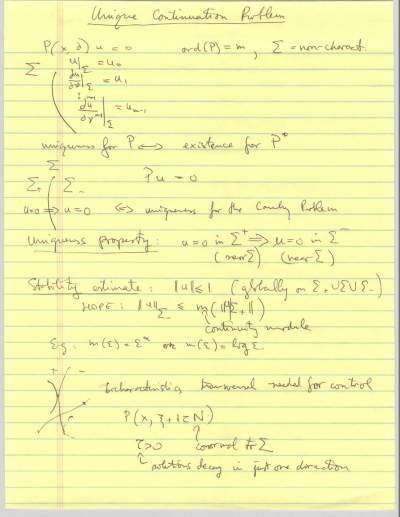 Unique Continuation Problem
P(x,∂) u = 0    ord(P) = m, Σ = non-charact.
Σ u|_Σ = u₀
∂u/∂ν|_Σ = u₁
∂^{m-1}u/∂ν^{m-1}|_Σ = u_{m-1}
uniqueness for P ⟷ existence for P*
Σ
Σ₊ Σ₋    Pu = 0
u=0 ⟹ u=0 ⟺ uniqueness for the Cauchy Problem
Uniqueness property: u=0 in Σ⁺ ⟹ u=0 in Σ⁻
(near Σ) (near Σ)
Stability estimate: ‖u‖≤1 (globally on Σ₊∪Σ∪Σ₋)
HOPE: ‖u‖_Σ₋ ≤ m(‖u‖_Σ₊)
continuity module
E.g. m(ε)=ε^α or m(ε)=log ε
+ −
bicharacteristics transversal needed for control
P(x, ξ+iτN)
τ>0 conormal to Σ
solutions decay in just one direction